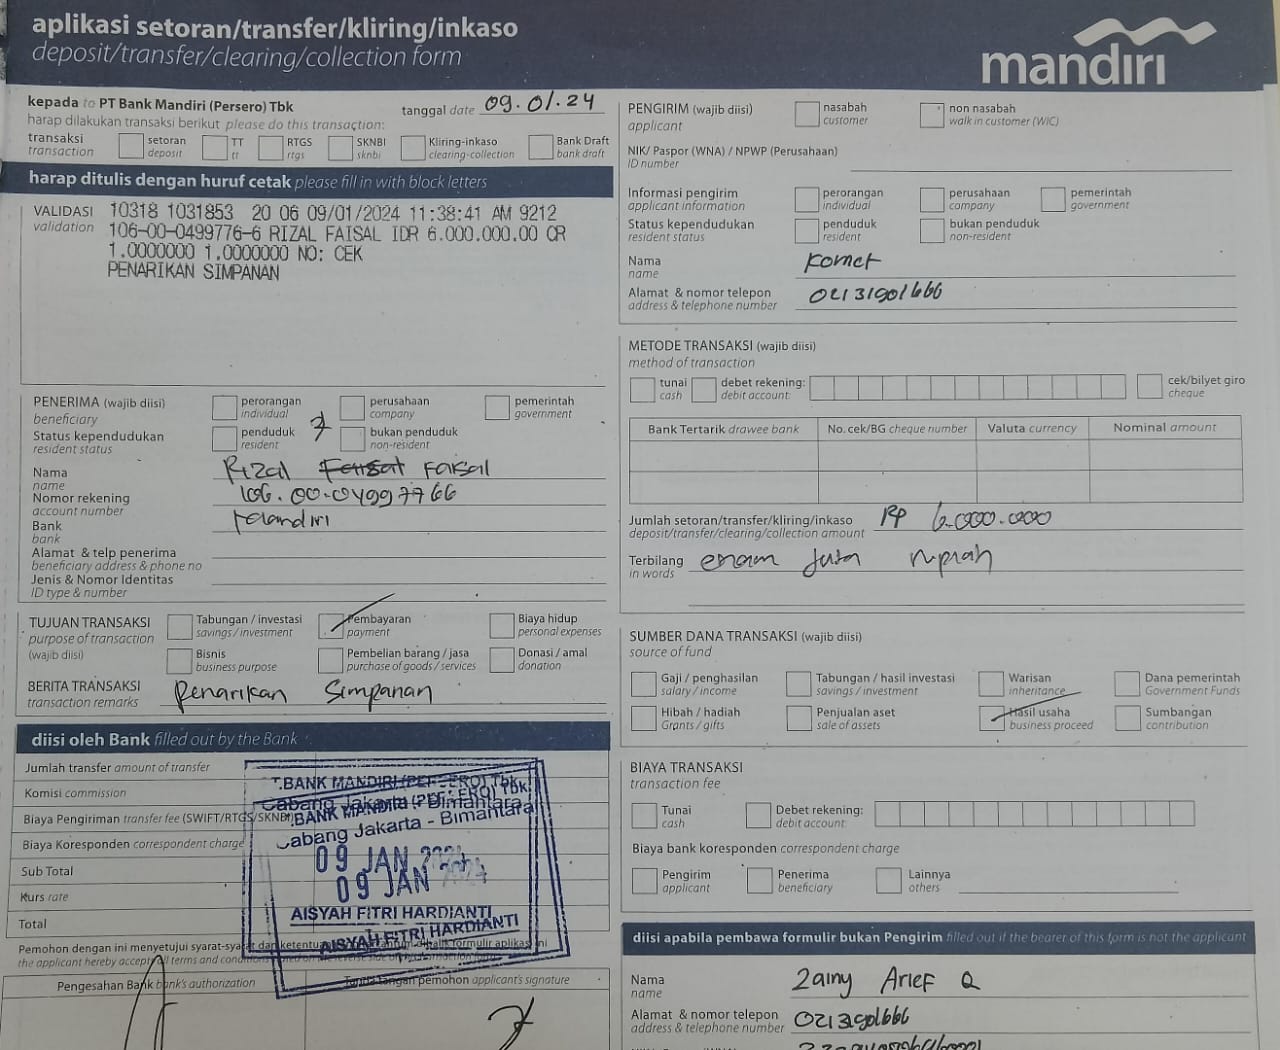 aplikasi setoran/transfer/kliring/inkaso
deposit/transfer/clearing/collection form
mandiri
kepada to PT Bank Mandiri (Persero) Tbk
tanggal date 09.01.24
harap dilakukan transaksi berikut please do this transaction:
transaksi
transaction
setoran
deposit
TT
tt
RTGS
rtgs
SKNBI
sknbi
Kliring-inkaso
clearing-collection
Bank Draft
bank draft
harap ditulis dengan huruf cetak please fill in with block letters
VALIDASI
validation
10318 1031853 20 06 09/01/2024 11:38:41 AM 9212
106-00-0499776-6 RIZAL FAISAL IDR 6.000.000.00 CR
1.0000000 1.0000000 NO: CEK
PENARIKAN SIMPANAN
PENERIMA (wajib diisi)
beneficiary
perorangan
individual
perusahaan
company
pemerintah
government
Status kependudukan
resident status
penduduk
resident
bukan penduduk
non-resident
Nama
name
Rizal Faisal
Nomor rekening
account number
106.00.04997766
Bank
bank
Mandiri
Alamat & telp penerima
beneficiary address & phone no
Jenis & Nomor Identitas
ID type & number
TUJUAN TRANSAKSI
purpose of transaction
(wajib diisi)
Tabungan / investasi
savings / investment
Pembayaran
payment
Biaya hidup
personal expenses
Bisnis
business purpose
Pembelian barang / jasa
purchase of goods / services
Donasi / amal
donation
BERITA TRANSAKSI
transaction remarks
Penarikan Simpanan
diisi oleh Bank filled out by the Bank
Jumlah transfer amount of transfer
Komisi commission
Biaya Pengiriman transfer fee (SWIFT/RTGS/SKNBI)
Biaya Koresponden correspondent charge
Sub Total
Kurs rate
Total
T.BANK MANDIRI (PERSERO) Tbk.
Cabang Jakarta - Bimantara
BANK MANDIRI (PERSERO) Tbk.
Cabang Jakarta - Bimantara
09 JAN 2024
09 JAN 2024
AISYAH FITRI HARDIANTI
AISYAH FITRI HARDIANTI
Pemohon dengan ini menyetujui syarat-syarat dan ketentuan formulir aplikasi ini
the applicant hereby accepts all terms and conditions
Pengesahan Bank bank's authorization
Tanda tangan pemohon applicant's signature
PENGIRIM (wajib diisi)
applicant
nasabah
customer
non nasabah
walk in customer (WIC)
NIK/ Paspor (WNA) / NPWP (Perusahaan)
ID number
Informasi pengirim
applicant information
perorangan
individual
perusahaan
company
pemerintah
government
Status kependudukan
resident status
penduduk
resident
bukan penduduk
non-resident
Nama
name
Komet
Alamat & nomor telepon
address & telephone number
02131901666
METODE TRANSAKSI (wajib diisi)
method of transaction
tunai
cash
debet rekening:
debit account:
cek/bilyet giro
cheque
Bank Tertarik drawee bank
No. cek/BG cheque number
Valuta currency
Nominal amount
Jumlah setoran/transfer/kliring/inkaso
deposit/transfer/clearing/collection amount
Rp 6.000.000
Terbilang
in words
enam juta rupiah
SUMBER DANA TRANSAKSI (wajib diisi)
source of fund
Gaji / penghasilan
salary / income
Tabungan / hasil investasi
savings / investment
Warisan
inheritance
Dana pemerintah
Government Funds
Hibah / hadiah
Grants / gifts
Penjualan aset
sale of assets
Hasil usaha
business proceed
Sumbangan
contribution
BIAYA TRANSAKSI
transaction fee
Tunai
cash
Debet rekening:
debit account:
Biaya bank koresponden correspondent charge
Pengirim
applicant
Penerima
beneficiary
Lainnya
others
diisi apabila pembawa formulir bukan Pengirim filled out if the bearer of this form is not the applicant
Nama
name
Zainy Arief Q
Alamat & nomor telepon
address & telephone number
02131901666